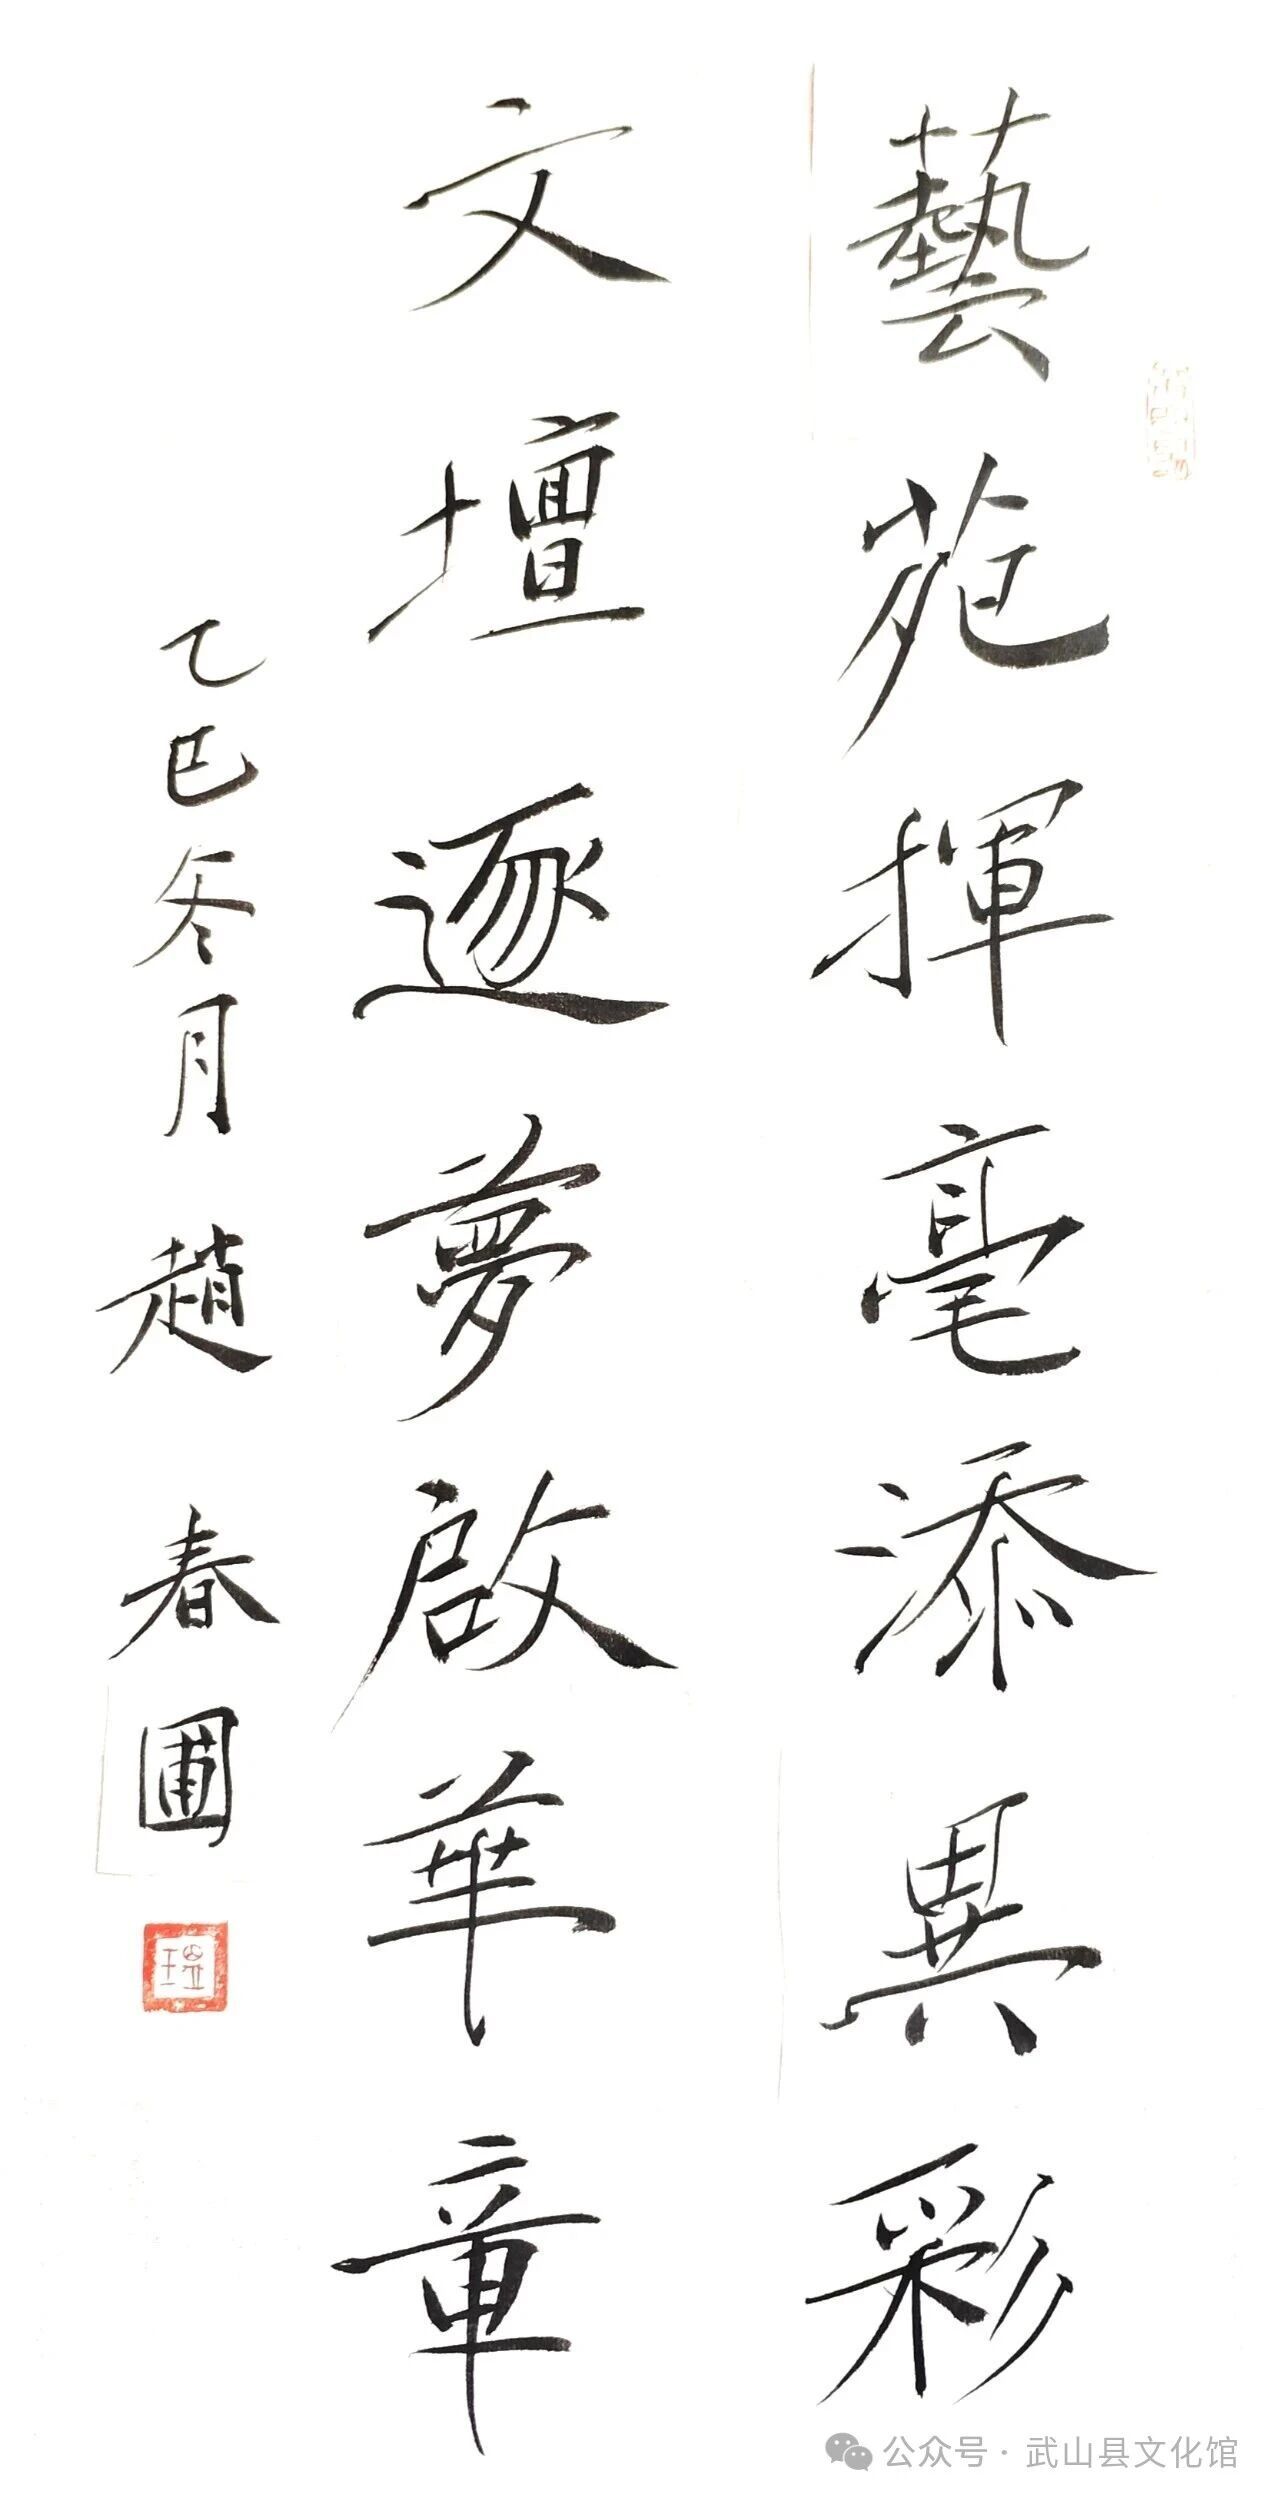 藝苑揮毫添異彩
文壇逐夢啟華章
乙巳冬月趙春圃
公众号·武山县文化馆